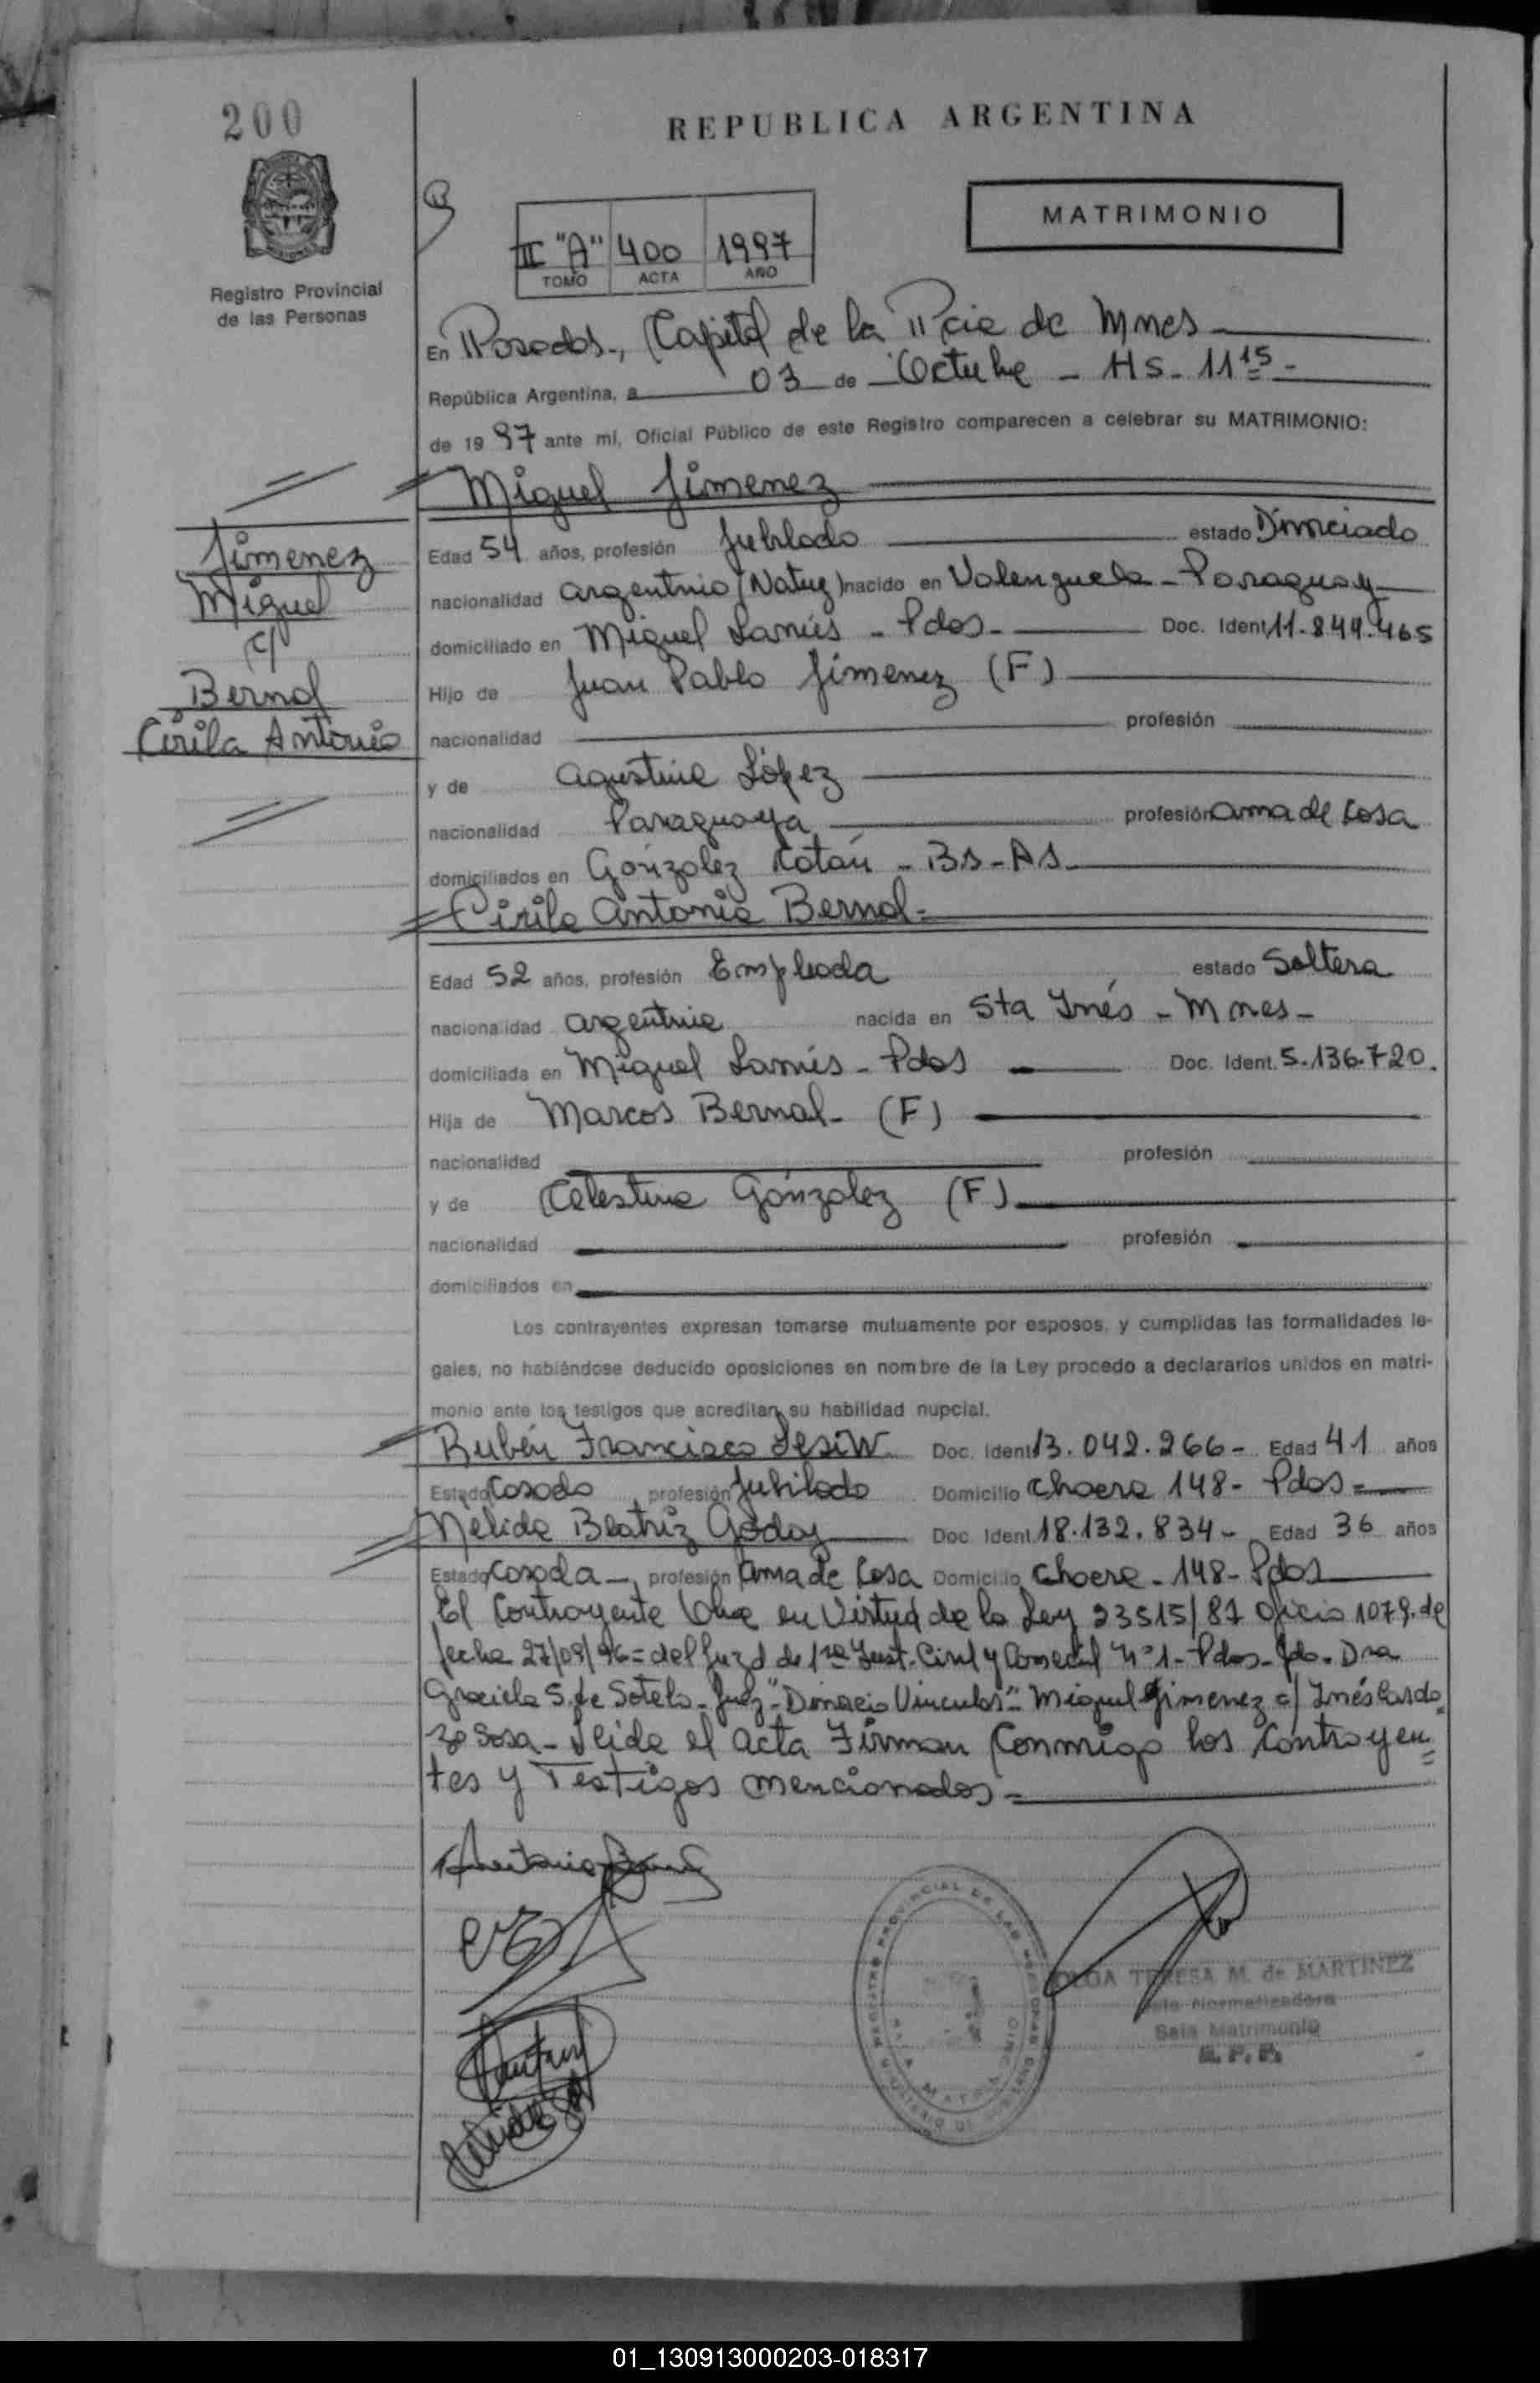 200
REPUBLICA ARGENTINA
MATRIMONIO
II "A" 400 1997
TOMO ACTA AÑO
Registro Provincial
de las Personas
En Posadas., Capital de la Pcia de Mnes
República Argentina, a 03 de Octubre - Hs. 11 15 -
de 1997 ante mí, Oficial Público de este Registro comparecen a celebrar su MATRIMONIO:
Miguel Jimenez
Jimenez
Miguel
c/
Bernal
Cirila Antonia
Edad 54 años, profesión Jubilado estado Divorciado
nacionalidad argentino (Natuz) nacido en Valenzuela - Paraguay
domiciliado en Miguel Lanús - Pdas - Doc. Ident 11.849.465
Hijo de Juan Pablo Jimenez (F)
nacionalidad profesión
y de Agustina López
nacionalidad Paraguaya profesión ama de casa
domiciliados en Gónzalez Catán - Bs - As
Cirila Antonia Bernal =
Edad 52 años, profesión Empleada estado Soltera
nacionalidad argentina nacida en Sta Inés - Mnes -
domiciliada en Miguel Lanús - Pdas Doc. Ident. 5.136.720.
Hija de Marcos Bernal - (F)
nacionalidad profesión
y de Celestina Gónzalez (F)
nacionalidad profesión
domiciliados en
Los contrayentes expresan tomarse mutuamente por esposos, y cumplidas las formalidades le-
gales, no habiéndose deducido oposiciones en nombre de la Ley procedo a declararlos unidos en matri-
monio ante los testigos que acreditan su habilidad nupcial.
Rubén Francisco Doc. Ident 13.042.266 - Edad 41 años
Estado Casado profesión Jubilado Domicilio Chacra 148 - Pdas =
Nélida Beatriz Godoy Doc. Ident. 18.132.834 - Edad 36 años
Estado Casada - profesión Ama de Casa Domicilio Chacra - 148 - Pdas
El Contrayente en Virtud de la Ley 23515/87 Oficio 1079. de
fecha 27/09/96 = del Juzd de 1ra Inst. Civil y Comercial Nº 1 - Pdas - Fdo. Dra
Graciela S. de Sotelo - Juez "Divorcio Vincular" Miguel Gimenez c/ Inés Cardo
zo Sosa - Leida el acta Firman Conmigo los Contrayen
tes y Testigos mencionados =
OLGA TERESA M. de MARTINEZ
Normalizadora
Sala Matrimonio
R. P. P.
01_130913000203-018317